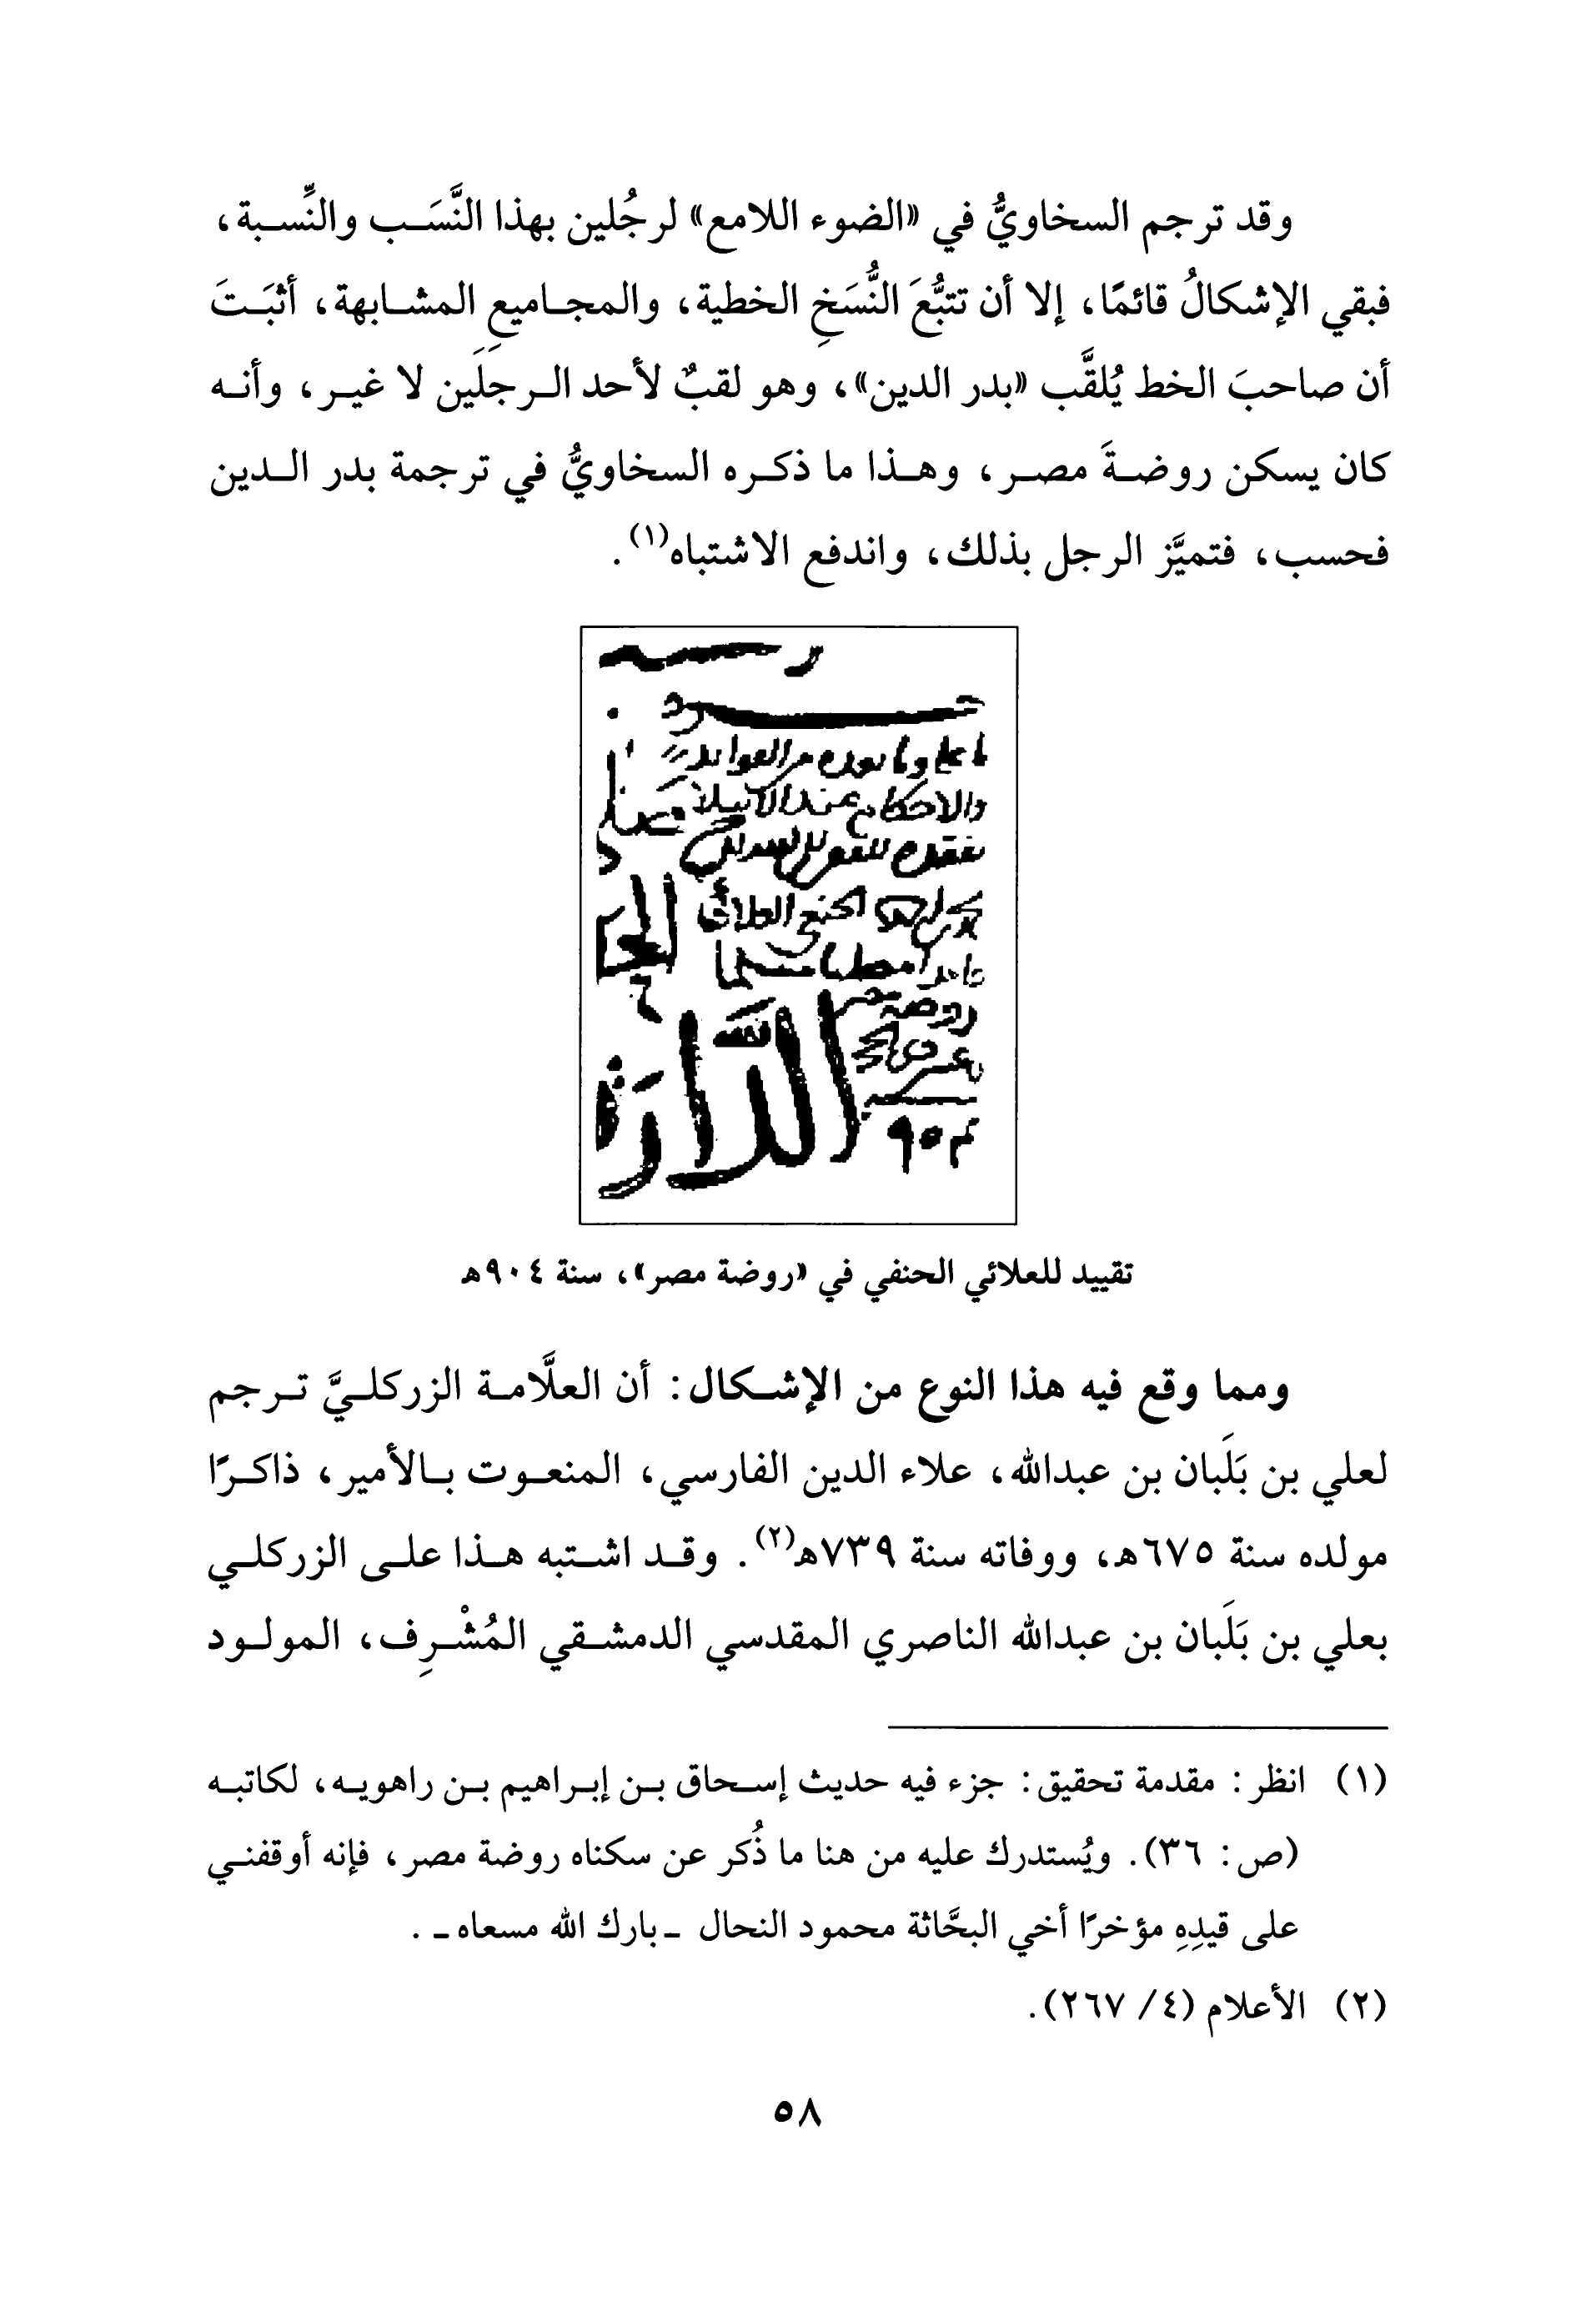 وقد ترجم السخاويُّ في «الضوء اللامع» لرجُلين بهذا النَّسَب والنِّسبة،
فبقي الإشكالُ قائمًا، إلا أن تتبُّعَ النُّسَخِ الخطية، والمجاميعِ المشابهة، أثبَتَ
أن صاحبَ الخط يُلقَّب «بدر الدين»، وهو لقبٌ لأحد الرجلَين لا غير، وأنه
كان يسكن روضةَ مصر، وهذا ما ذكره السخاويُّ في ترجمة بدر الدين
فحسب، فتميَّز الرجل بذلك، واندفع الاشتباه(١).
والاحكام عند
الحنفي العلائي
روضة مصر
٩٠٤
تقييد للعلائي الحنفي في «روضة مصر»، سنة ٩٠٤هـ
ومما وقع فيه هذا النوع من الإشكال: أن العلَّامة الزركليَّ ترجم
لعلي بن بَلَبان بن عبدالله، علاء الدين الفارسي، المنعوت بالأمير، ذاكرًا
مولده سنة ٦٧٥هـ، ووفاته سنة ٧٣٩هـ(٢). وقد اشتبه هذا على الزركلي
بعلي بن بَلَبان بن عبدالله الناصري المقدسي الدمشقي المُشْرِف، المولود
(١) انظر: مقدمة تحقيق: جزء فيه حديث إسحاق بن إبراهيم بن راهويه، لكاتبه
(ص: ٣٦). ويُستدرك عليه من هنا ما ذُكر عن سكناه روضة مصر، فإنه أوقفني
على قيدِهِ مؤخرًا أخي البحَّاثة محمود النحال ـ بارك الله مسعاه ـ.
(٢) الأعلام (٤/ ٢٦٧).
٥٨